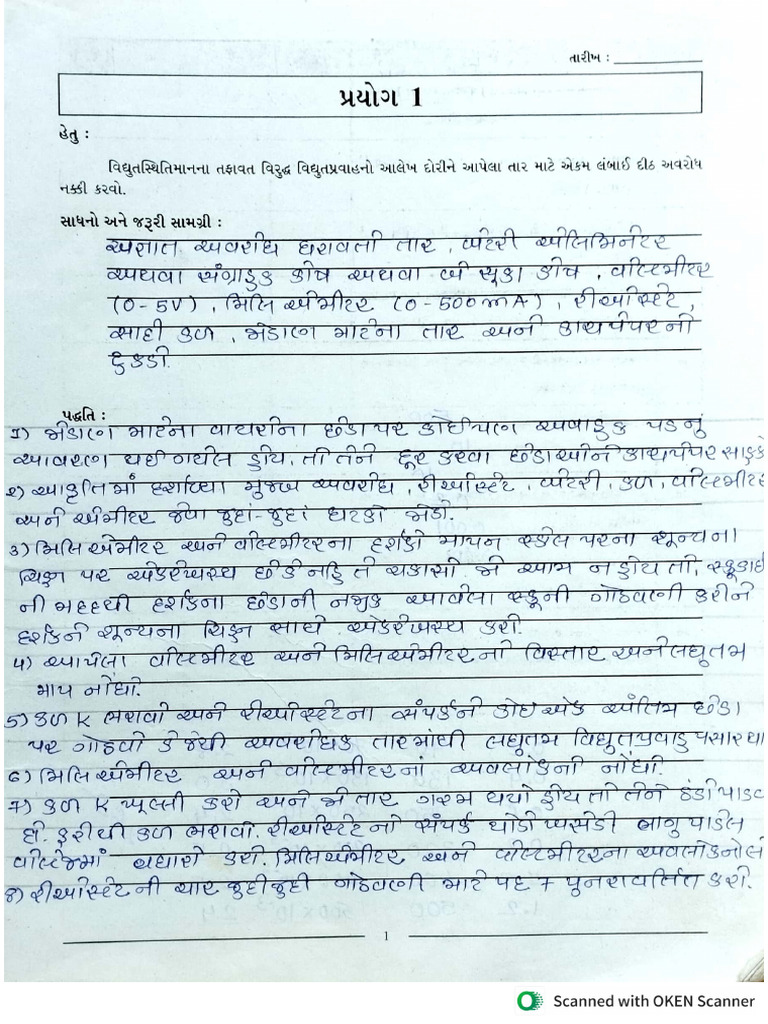 તારીખ :
પ્રયોગ 1
હેતુ :
વિદ્યુતસ્થિતિમાનના તફાવત વિરુદ્ધ વિદ્યુતપ્રવાહનો આલેખ દોરીને આપેલા તાર માટે એકમ લંબાઈ દીઠ અવરોધ
નક્કી કરવો.
સાધનો અને જરૂરી સામગ્રી :
અજ્ઞાત અવરોધ ધરાવતી તાર, બેટરી એલિમિનેટર
અથવા સંગ્રાહક કોષ અથવા બે સૂકા કોષ, વોલ્ટમીટર
(0-5V), મિલિ એમીટર (0-500mA), રીઓસ્ટેટ,
સાદી કળ, જોડાણ માટેના તાર અને કાચપેપરનો
ટુકડો.
પદ્ધતિ :
1) જોડાણ માટેના વાયરોના છેડા પર કોઈપણ અવાહક પડનું
આવરણ થઈ ગયેલ હોય, તો તેને દૂર કરવા છેડાઓને કાચપેપર
2) આકૃતિમાં દર્શાવ્યા મુજબ અવરોધ, રીઓસ્ટેટ, બેટરી, કળ, વોલ્ટમીટર
અને એમીટર જેવા જુદાં-જુદાં ઘટકો જોડો.
3) મિલિએમીટર અને વોલ્ટમીટરના દર્શકો માપન સ્કેલ પરના શૂન્યના
ચિહ્ન પર એકરેખસ્થ છે કે નહિ તે ચકાસો જો આમ ન હોય તો, સ્ક્રૂડ્રાઇ
ની મદદથી દર્શકના છેડાની નજીક આવેલા સ્ક્રૂની ગોઠવણી કરીને
દર્શકને શૂન્યના ચિહ્ન સાથે એકરેખસ્થ કરો.
4) આપેલા વોલ્ટમીટર અને મિલિએમીટરનો વિસ્તાર અને લઘુતમ
માપ નોંધો.
5) કળ K ભરાવો અને રીઓસ્ટેટના સંપર્કને કોઈ એક અંતિમ છેડા
પર ગોઠવો કે જેથી અવરોધક તારમાંથી લઘુતમ વિદ્યુતપ્રવાહ પસાર થાય
6) મિલિએમીટર અને વોલ્ટમીટરનાં અવલોકનો નોંધો.
7) કળ K ખુલ્લી કરો અને જો તાર ગરમ થયો હોય તો તેને ઠંડો પાડવા
દો. ફરીથી કળ ભરાવો. રીઓસ્ટેટનો સંપર્ક થોડો ખસેડી લાગુ પાડેલ
વોલ્ટેજમાં વધારો કરો. મિલિએમીટર અને વોલ્ટમીટરના અવલોકનો લો
8) રીઓસ્ટેટની ચાર જુદીજુદી ગોઠવણી માટે પદ 7 પુનરાવર્તિત કરો.
1
Scanned with OKEN Scanner